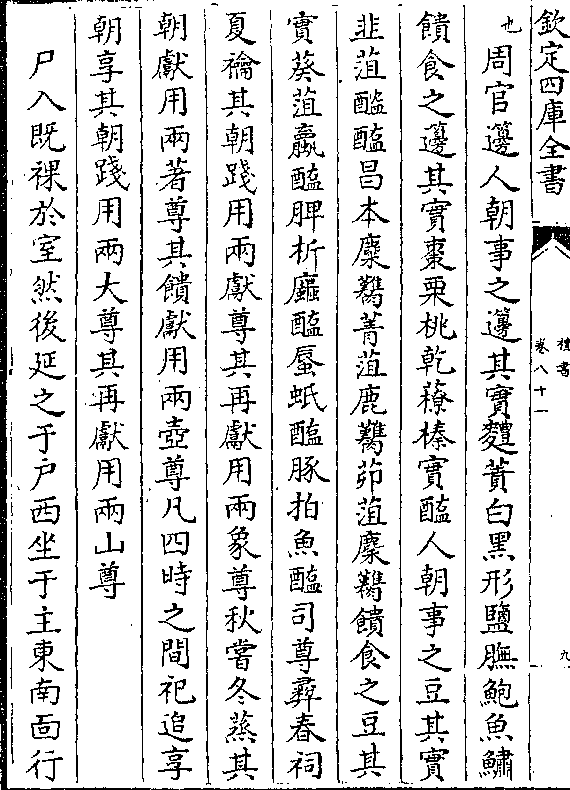 欽定四庫全書
禮書
卷八十一
九
也
周官籩人朝事之籩其實麷蕡白黑形鹽膴鮑魚鱐
饋食之籩其實棗栗桃乾䕩榛實醢人朝事之豆其實
韭菹醓醢昌本麋臡菁菹鹿臡茆菹麋臡饋食之豆其
實葵菹蠃醢脾析蠯醢蜃蚳醢豚拍魚醢司尊彛春祠
夏禴其朝踐用兩獻尊其再獻用兩象尊秋嘗冬蒸其
朝獻用兩著尊其饋獻用兩壺尊凡四時之間祀追享
朝享其朝踐用兩大尊其再獻用兩山尊
尸入既祼於室然後延之于户西坐于主東南面行